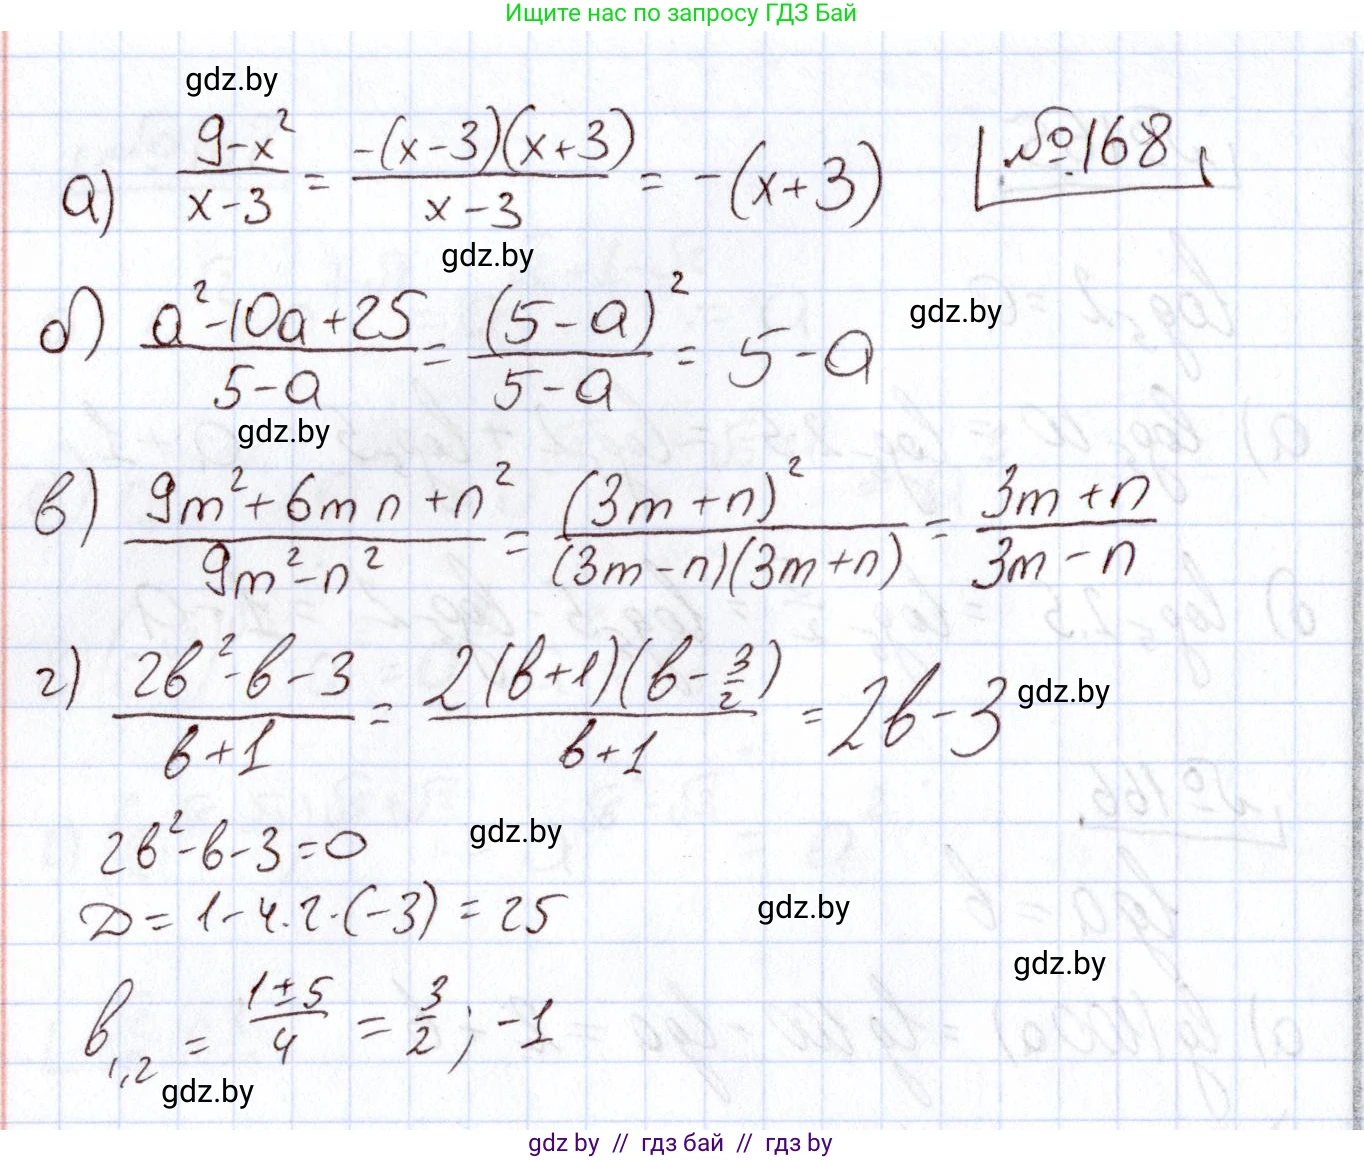 Ищите нас по запросу ГДЗ Бай
gdz.by
№168
а) (9-x²)/(x-3) = (-(x-3)(x+3))/(x-3) = -(x+3)
gdz.by
б) (a²-10a+25)/(5-a) = (5-a)²/(5-a) = 5-a
gdz.by
gdz.by
в) (9m²+6mn+n²)/(9m²-n²) = (3m+n)²/((3m-n)(3m+n)) = (3m+n)/(3m-n)
г) (2b²-b-3)/(b+1) = (2(b+1)(b-3/2))/(b+1) = 2b-3
gdz.by
2b²-b-3=0
gdz.by
D=1-4·2·(-3)=25
gdz.by
gdz.by
b₁,₂ = (1±5)/4 = 3/2; -1
gdz.by
gdz by // гдз бай // гдз by